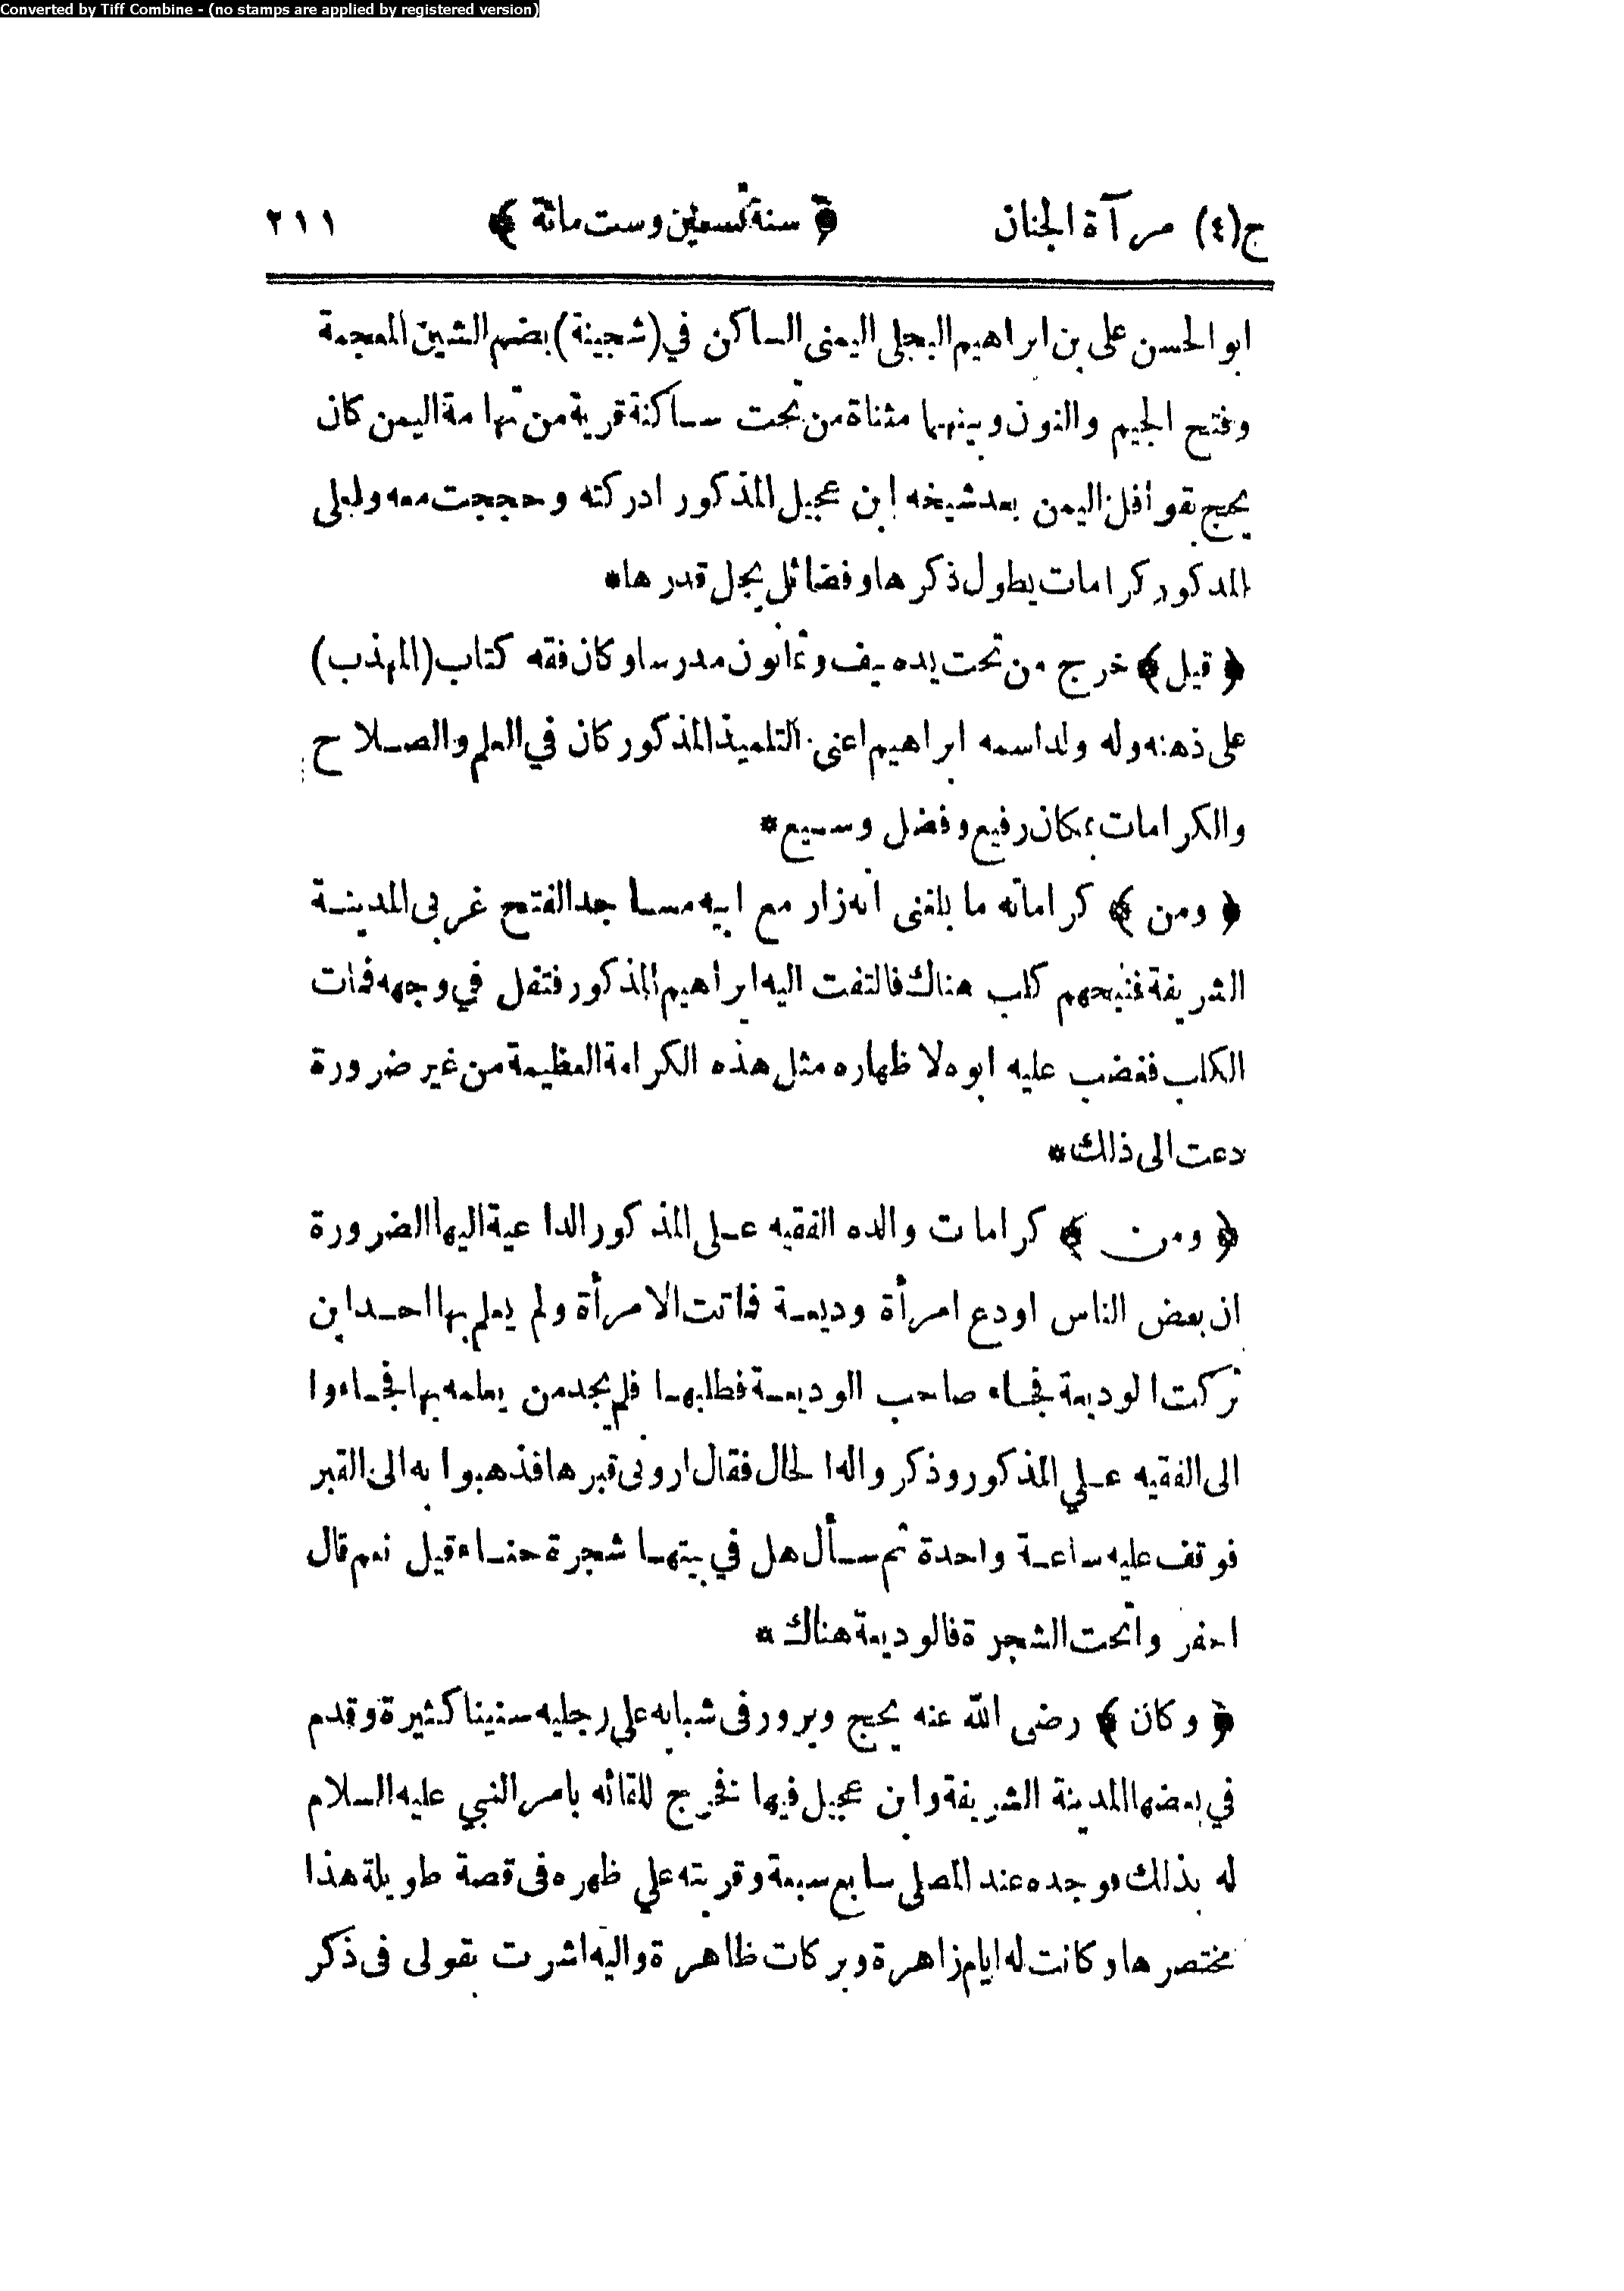 Converted by Tiff Combine - (no stamps are applied by registered version)
ج(٤) مرآة الجنان ﴿ سنة تسعين وست مائة ﴾ ٢١١
ابو الحسن على بن ابراهيم البجلى اليمنى الساكن في (شجينة) بضم الشين المعجمة
وفتح الجيم والنون وبينهما مثناة من تحت ساكنة قرية من تهامة اليمن كان
يحج بقوافل اليمن بعد شيخه ابن عجيل المذكور ادركته وحججت معه ولعلى
المذكور كرامات يطول ذكرها وفضائل يجل قدرها*
﴿ قيل ﴾ خرج من تحت يده يف وثمانون مدرسا وكان فقه كتاب (المهذب)
على ذهنه وله ولد اسمه ابراهيم اعنى التلميذ المذكور كان في العلم والصلاح
والكرامات بمكان رفيع وفضل وسيع*
﴿ ومن ﴾ كراماته ما بلغنى انه زار مع ابيه مساجد الفتح غربى المدينة
الشريفة فنبحهم كلب هناك فالتفت اليه ابراهيم المذكور فتفل في وجهه فمات
الكلب فغضب عليه ابوه لا ظهاره مثل هذه الكرامة العظيمة من غير ضرورة
دعت الى ذلك*
﴿ ومن ﴾ كرامات والده الفقيه على المذكور الداعية اليها الضرورة
ان بعض الناس اودع امرأة وديعة فماتت الامرأة ولم يعلم بها احد اين
تركت الوديعة فجاء صاحب الوديعة فطلبها فلم يجد من يعلمه بها فجاءوا
الى الفقيه علي المذكور وذكروا له الحال فقال ارونى قبرها فذهبوا به الى القبر
فوقف عليه ساعة واحدة ثم سأل هل في بيتها شجرة حناء قيل نعم قال
احفروا تحت الشجرة فالوديعة هناك*
﴿ وكان ﴾ رضى الله عنه يحج ويزور فى شبابه على رجليه سنينا كثيرة وقدم
في بعضها المدينة الشريفة وابن عجيل فيها فخرج للقائه بامر النبي عليه السلام
له بذلك فوجده عند المصلى سابع سبعة وقربته علي ظهره فى قصة طويلة هذا
مختصرها وكانت له ايام زاهرة وبركات ظاهرة واليه اشرت بقولى فى ذكر